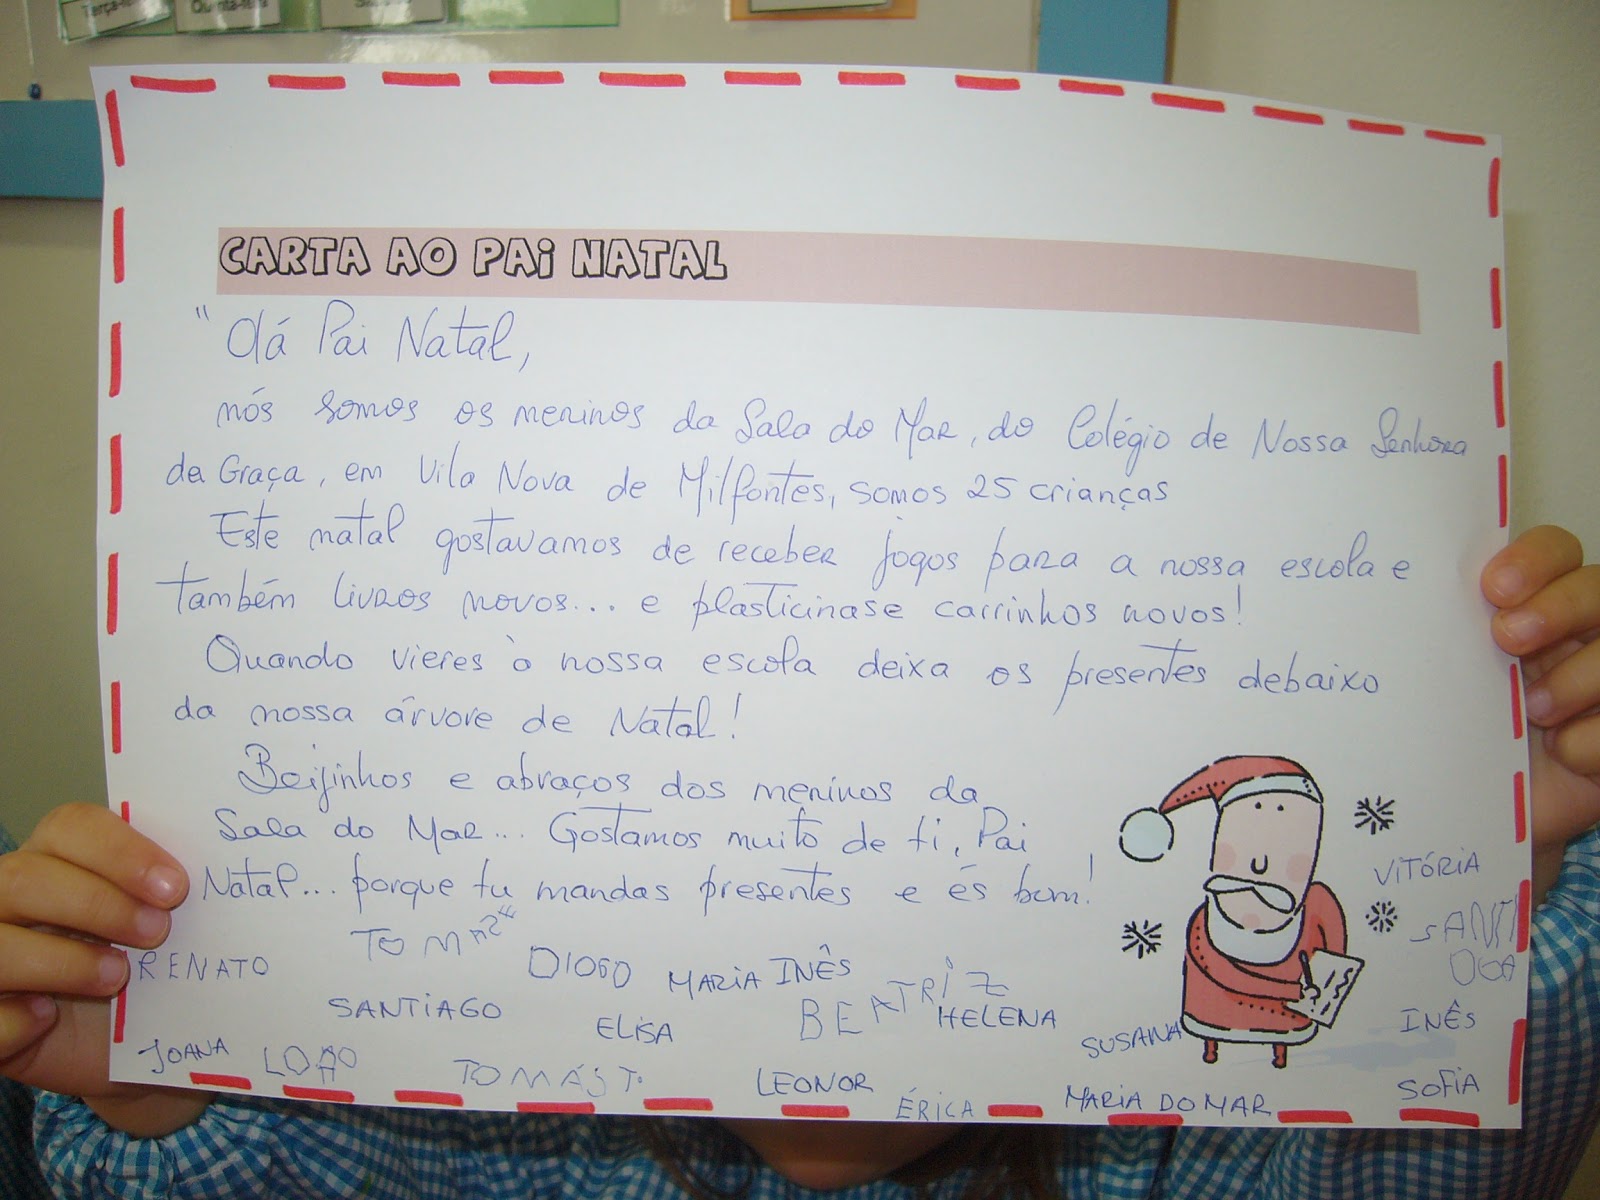 Terça-fe
Quinta-feira
CARTA AO PAI NATAL
" Olá Pai Natal,
nós somos os meninos da Sala do Mar, do Colégio de Nossa Senhora
da Graça, em Vila Nova de Milfontes, somos 25 crianças
Este natal gostavamos de receber jogos para a nossa escola e
também livros novos... e plasticinas e carrinhos novos!
Quando vieres à nossa escola deixa os presentes debaixo
da nossa árvore de Natal!
Beijinhos e abraços dos meninos da
Sala do Mar... Gostamos muito de ti, Pai
Natal... porque tu mandas presentes e és bom!
VITÓRIA
RENATO
DIOGO
MARIA INÊS
BEATRIZ
SANTIAGO
ELISA
HELENA
SUSANA
INÊS
JOANA
LEONOR
ÉRICA
MARIA DO MAR
SOFIA